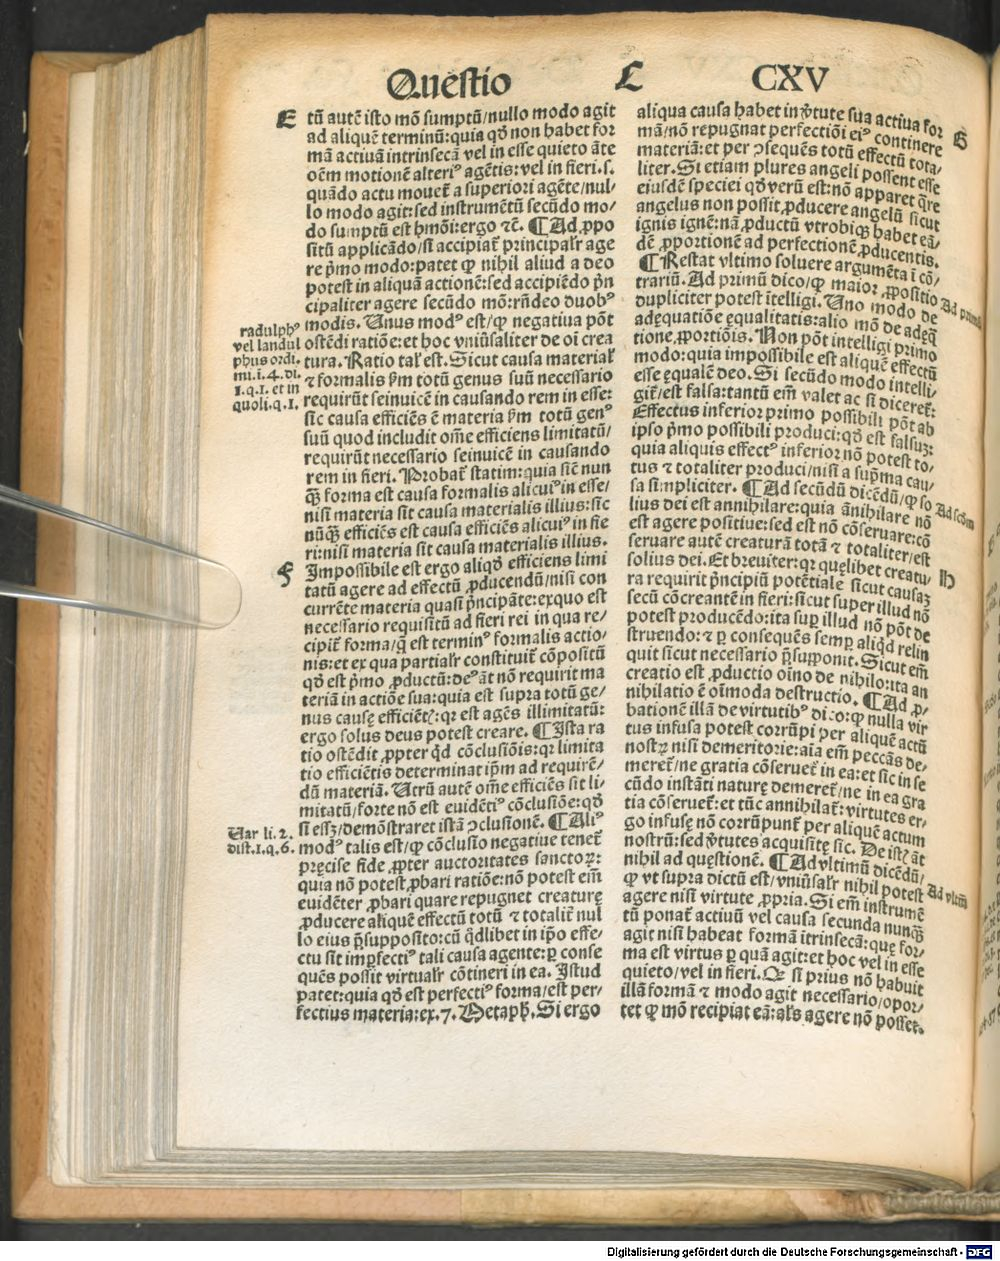 Questio L CXV
E tū autē isto mō sumptū/nullo modo agit
ad aliquē terminū:quia qđ non habet for
mā actiuā intrinsecā vel in esse quieto āte
oēm motionē alteriꝰ agētis:vel in fieri.s.
quādo actu mouet̄ a superiori agēte/nul⸗
lo modo agit:sed instrumētū secūdo mo⸗
do sumptū est hmōi:ergo ⁊c̄. ¶Ad ꝓpo
sitū applicādo/si accipiat̄ principalr̄ age
re pͥmo modo:patet ꝙ nihil aliud a deo
potest in aliquā actionē:sed accipiēdo pͥn
cipaliter agere secūdo mō:rn̄deo duobꝰ
modis. Unus modꝰ est/ꝙ negatiua pōt
ostēdi ratiōe:et hoc vniūsaliter de oi crea
tura. Ratio tal̄ est. Sicut causa material̄
⁊ formalis ẜm totū genus suū necessario
requirūt seinuicē in causando rem in esse:
sic causa efficiēs ē materia ẜm totū genꝰ
suū quod includit om̄e efficiens limitatū/
requirūt necessario seinuicē in causando
rem in fieri. Probat̄ statim:quia sic̄ nun
qͣꝫ forma est causa formalis alicuiꝰ in esse/
nisi materia sit causa materialis illius:sic
nūqͣꝫ efficiēs est causa efficiēs alicuiꝰ in fie
ri:nisi materia sit causa materialis illius.
F Impossibile est ergo aliqđ efficiens limi
tatū agere ad effectū ꝓducendū/nisi con
currēte materia quasi pͥncipāte:exquo est
necessario requisitū ad fieri rei in qua re⸗
cipit̄ forma/q̄ est terminꝰ formalis actio⸗
nis:et ex qua partialr̄ constituit̄ cōpositū
qđ est pͥmo ꝓductū:deꝰ āt nō requirit ma
teriā in actiōe sua:quia est supra totū ge⸗
nus causę efficiētꝭ:qr est agēs illimitatū:
ergo solus deus potest creare. ¶Ista ra
tio ostēdit ꝓpter qͥd cōclusiōis:qr limita
tio efficiētis determinat ip̄m ad requirē⸗
dū materiā. Utrū autē om̄e efficiēs sit li⸗
mitatū/forte nō est euidētiꝰ cōclusiōe:qđ
si essꝫ/demōstraret istā ↄclusionē. ¶Aliꝰ
modꝰ talis est/ꝙ cōclusio negatiue tenet̄
pręcise fide ꝓpter auctoritates sanctoꝝ:
quia nō potest ꝓbari ratiōe:nō potest em̄
euidēter ꝓbari quare repugnet creaturę
ꝓducere aliquē effectū totū ⁊ totalit̄ nul
lo eius p̄supposito:cū qͥdlibet in ip̄o effe⸗
ctu sit imꝑfectiꝰ tali causa agente:ꝑ conse
quēs possit virtualr̄ cōtineri in ea. Istud
patet:quia qđ est perfectiꝰ forma/est per⸗
fectius materia:ex.7.Metaph. Si ergo
radulphꝰ
vel landul
phus ordi.
mi.i.4.di.
1.q.1. et in
quoli.q.1.
Uar li.2.
dist.1.q.6.
aliqua causa habet in v̓tute sua actiua for
mā/nō repugnat perfectiōi eiꝰ continere G
materiā:et per ↄsequēs totū effectū tota⸗
liter. Si etiam plures angeli possent esse
eiusdē speciei qđ verū est:nō apparet q̄re
angelus non possit ꝓducere angelū sicut
ignis ignē:nā ꝓductū vtrobiqꝫ habet eā⸗
dē ꝓportionē ad perfectionē ꝓducentis.
¶Restat vltimo soluere argumēta ī cō⸗
trariū. Ad primū dico/ꝙ maior ꝓpositio
dupliciter potest ītelligi. Uno modo de
adęquatiōe ęqualitatis:alio mō de adęq̄
tione ꝓportiōis. Non pōt intelligi primo
modo:quia impossibile est aliquē effectū
esse ęqualē deo. Si secūdo modo intelli⸗
git̄/est falsa:tantū em̄ valet ac si diceret̄:
Effectus inferior primo possibili pōt ab
ipso pͥmo possibili produci:qđ est falsuꝫ:
quia aliquis effectꝰ inferior nō potest to⸗
tus ⁊ totaliter produci/nisi a sup̄ma cau⸗
sa simpliciter. ¶Ad secūdū dicēdū/ꝙ so
lius dei est annihilare:quia ānihilare nō
est agere positiue:sed est nō cōseruare:cō
seruare autē creaturā totā ⁊ totaliter/est
solius dei. Et breuiter:qr quęlibet creatu⸗ H
ra requirit pͥncipiū potētiale sicut causaꝫ
secū cōcreantē in fieri:sicut super illud nō
potest producēdo:ita suꝑ illud nō pōt de
struendo:⁊ ꝑ consequēs semꝑ aliqͥd relin
quit sicut necessario p̄supponit. Sicut em̄
creatio est ꝓductio oīno de nihilo:ita an
nihilatio ē oīmoda destructio. ¶Ad ꝓ⸗
bationē illā de virtutibꝰ dico:ꝙ nulla vir
tus infusa potest corrūpi per aliquē actū
nostꝝ nisi demeritorie:aīa em̄ peccās de⸗
meret̄/ne gratia cōseruet̄ in ea:et sic in se
cūdo instāti naturę demeret̄/ne in ea gra
tia cōseruet̄:et tūc annihilat̄:virtutes er⸗
go infusę nō corrūpunt̄ per aliquē actum
nostrū:sed v̓tutes acquisitę sic. De istꝭ āt
nihil ad quęstionē. ¶Ad vltimū dicēdū/
ꝙ vt supra dictū est/vniūsalr̄ nihil potest
agere nisi virtute ꝓpria. Si em̄ instrumē
tū ponat̄ actiuū vel causa secunda nunqͣꝫ
agit nisi habeat formā ītrinsecā:quę for⸗
ma est virtus ꝑ quā agit:et hoc vel in esse
quieto/vel in fieri. Qꝫ si prius nō habuit
illā formā ⁊ modo agit necessario/opor⸗
tet ꝙ mō recipiat eā:al̄s agere nō posset.
Ad primū
Ad scđm
Ad vltīū
Digitalisierung gefördert durch die Deutsche Forschungsgemeinschaft - DFG